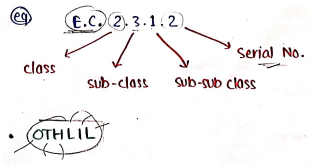 eg
E.C. 2.3.1.2
Serial No.
class
sub-class
sub-sub class
• OTHLIL